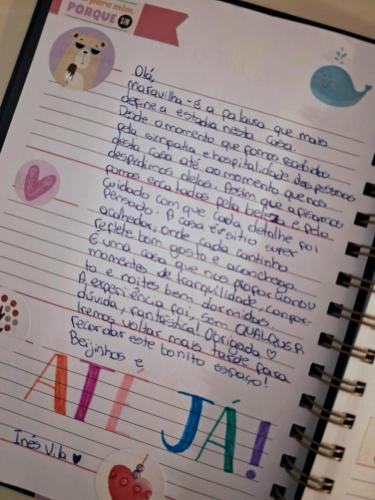 para mim,
PORQUE SIM
Olá,
maravilha - é a palavra que mais
define a estadia nesta casa.
Desde o momento que fomos recebidos
pela simpatia e hospitalidade das pessoas
desta casa até ao momento que nos
despedimos delas. Assim que aficamos
fomos encantados pela beleza e pelo
cuidado com que cada detalhe foi
pensado. A casa é sítio super
acolhedor, onde cada cantinho
reflete bom gosto e aconchego.
É uma casa que nos proporcionou
momentos de tranquilidade, confor-
to e noites bem dormidas.
A experiência foi, sem QUALQUER
dúvida, fantástica! Obrigada ♡
Iremos voltar mais tarde para
recordar este bonito espaço!
Beijinhos e
ATÉ JÁ!
Inês Vila ♥